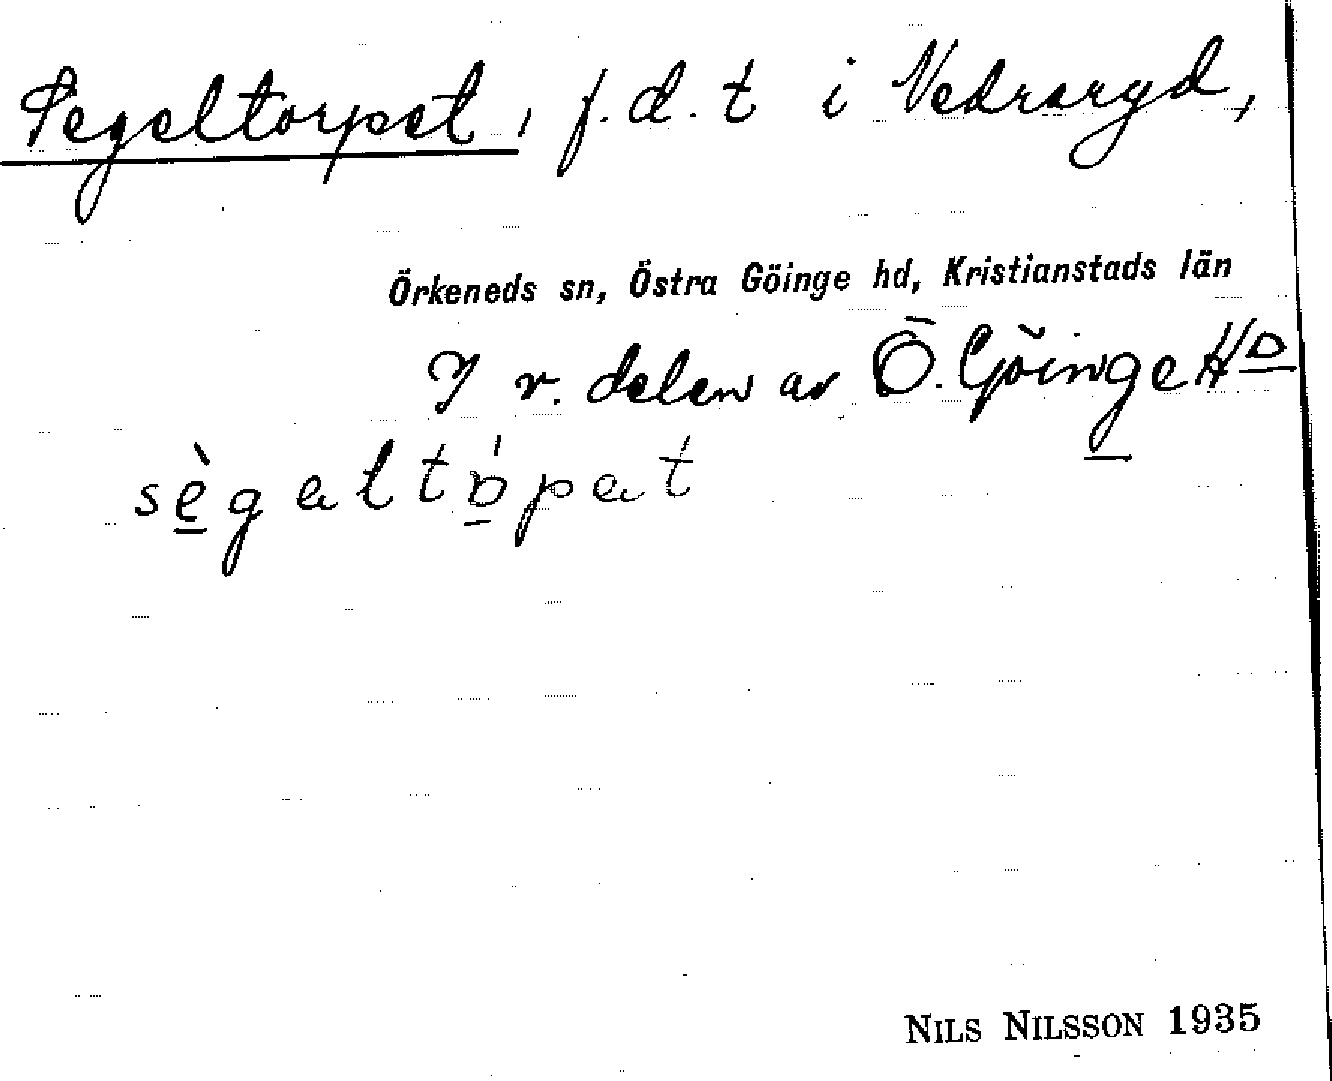 Segeltorpet, f.d. t i Vedraryd,
Örkeneds sn, Östra Göinge hd, Kristianstads län
I v. delen av Ö. Göinge HD
sègaltópat
NILS NILSSON 1935